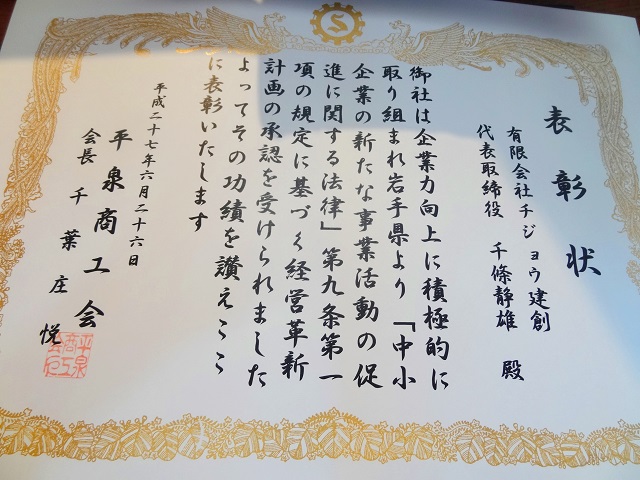 表彰状
有限会社チジョウ建創
代表取締役 千條静雄 殿
御社は企業力向上に積極的に
取り組まれ岩手県より「中小
企業の新たな事業活動の促
進に関する法律」第九条第一
項の規定に基づく経営革新
計画の承認を受けられました
よってその功績を讃えここ
に表彰いたします
平成二十七年六月二十六日
平泉商工会
会長 千葉庄悦
平泉
商工
会印